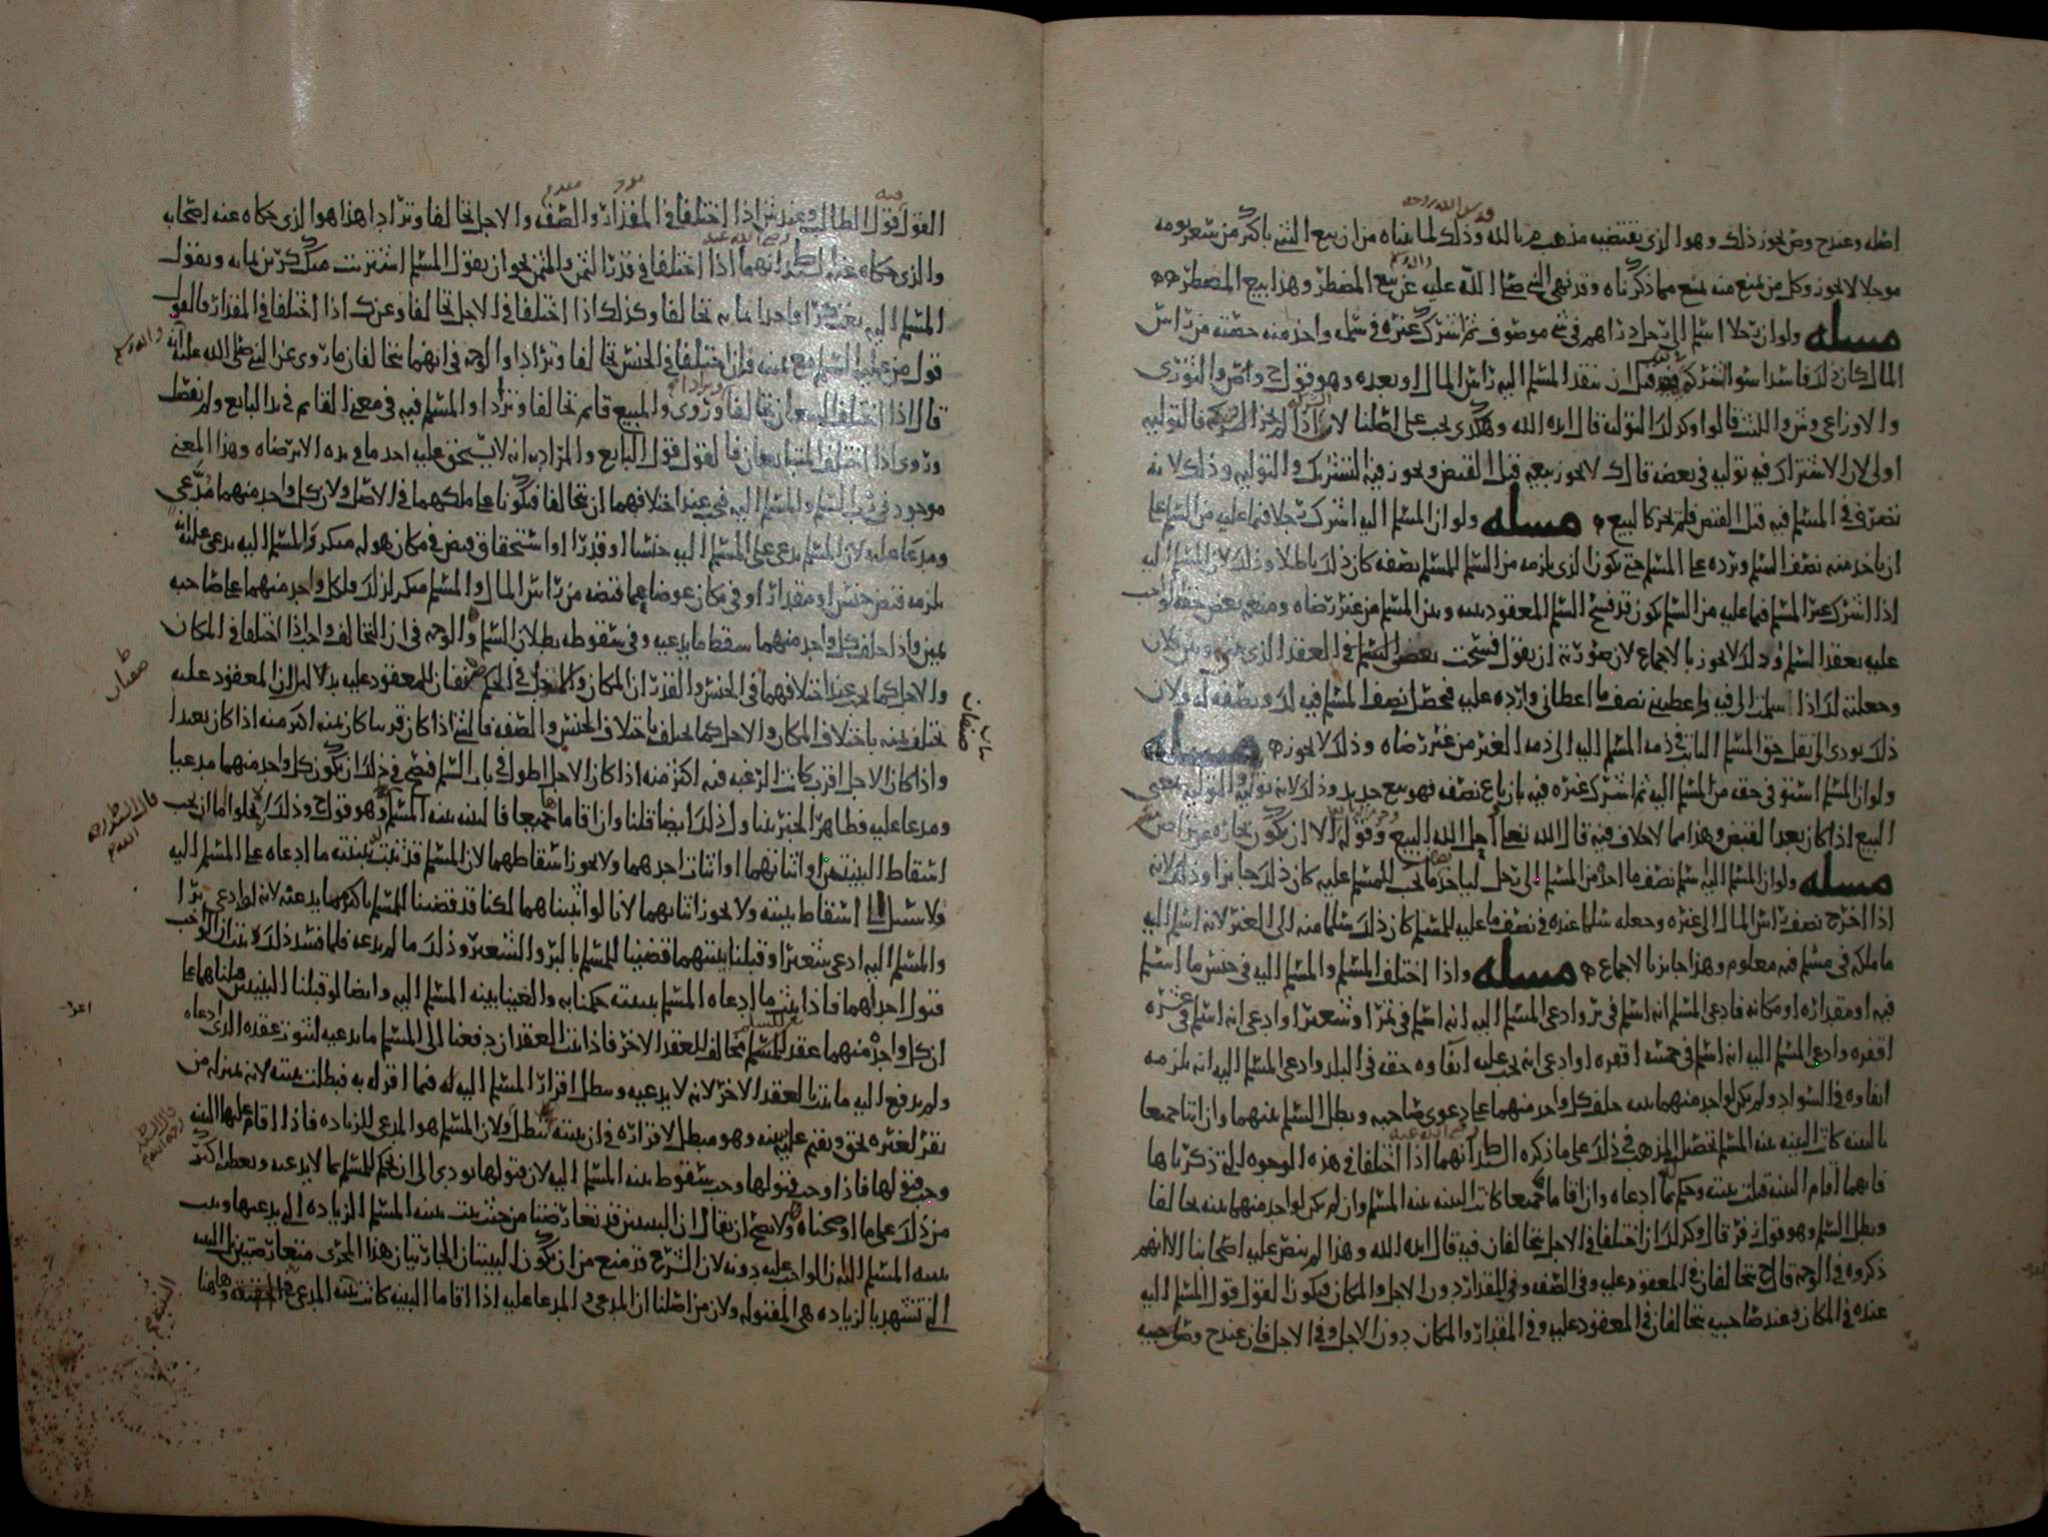 اصله وعندح وص يجوز ذلك وهو الذي يقتضيه مذهب م بالله وذلك لما بيناه من ان بيع الشي باكثر من سعر يومه
موجلا لا يجوز وكل من يمنع منه يمنع مما ذكرناه وقد نهى النبي صلى الله عليه عن بيع المضطر وهذا بيع المضطر
مسله ولو ان رجلا اسلم الى رجل دراهم في شي موصوف ثم اشرك غيره في سلمه واخذ منه حصته من راس
المال كان ذلك فاسدا سوا اشركه قبل ان ينقد المسلم اليه راس المال او بعده وهو قول ح وص والثوري
والاوزاعي وش والليث قالوا وكذلك التوليه قال ايده الله وهكذى يجب على اصلنا لان اذا لم تجز الشركه فالتوليه
اولى لان الاشتراك فيه توليه في بعضه قال ك لا يجوز بيعه قبل القبض ويجوز فيه التشريك والتوليه وذلك لانه
تصرف في المسلم فيه قبل القبض فلم يجز كالبيع مسله ولو ان المسلم اليه اشرك رجلا فيما عليه من السلم على
ان ياخذ منه نصف السلم ويرده على المسلم حتى يكون الذي يلزمه من السلم للمسلم نصفه كان ذلك باطلا وذلك لان المسلم اليه
اذا اشرك غيره في السلم فيما عليه من السلم يكون قد فسخ السلم المعقود بينه وبين المسلم من غير رضاه ومنعه بعض حقه الواجب
عليه بعقد السلم وذلك لا يجوز بالاجماع لان صورته ان يقول فسخت بعض السلم في العقد الذي بيني وبين فلان
وجعلته لك اذا اسلمت الي فيه واعطيتني نصف ما اعطاني وارده عليه فيحصل نصف المسلم فيه لك ونصفه له ولان
ذلك يودي الى نقل حق المسلم الثابت في ذمه المسلم اليه الى ذمه الغير من غير رضاه وذلك لا يجوز مسله
ولو ان المسلم استوفى حقه من المسلم اليه ثم اشرك غيره فيه بان باع نصفه فهو بيع جديد وذلك لانه توليه والتوليه بمعنى
البيع اذا كان بعد القبض وهذا مما لا خلاف فيه قال الله تعلى احل الله البيع وقوله الا ان تكون تجاره عن تراض
مسله ولو ان المسلم اليه سلم نصف ما اخذ من المسلم الى رجل لياخذ ما يجب للمسلم عليه كان ذلك جايزا وذلك لانه
اذا اخرج نصف راس المال الى غيره وجعله سلما عنده في نصف ما عليه للمسلم كان ذلك سلما منه الى الغير لانه اسلم اليه
ما ملكه في مسلم فيه معلوم وهذا جايز بالاجماع مسله واذا اختلف المسلم والمسلم اليه في جنس ما اسلم
فيه او مقداره او مكانه فادعى المسلم انه اسلم في بر وادعى المسلم اليه انه اسلم في تمر او شعير او ادعى انه اسلم في عشره
اقفزه وادعى المسلم اليه انه اسلم في خمسه اقفزه او ادعى انه يجب عليه ايفاوه حقه في البلد وادعى المسلم اليه انه يلزمه
ايفاوه في السواد ولم يكن لواحد منهما بينه حلف كل واحد منهما على دعوى صاحبه وبطل السلم بينهما وان اتيا جميعا
بالبينه كانت البينه بينه المسلم تحصيل المذهب في ذلك على ما ذكره السيد ط انهما اذا اختلفا في هذه الوجوه التي ذكرناها
فايهما اقام البينه قبلت بينته وحكم بما ادعاه وان اقاما جميعا كانت البينه بينه المسلم وان لم يكن لواحد منهما بينه تحالفا
وبطل السلم وهو قول ف قال وكذلك ان اختلفا في الاجل يتحالفان فيه قال ايده الله وهذا لم ينص عليه اصحابنا الا انهم
ذكروه في الوجه قال ح يتحالفان في المعقود عليه وفي الصفه وفي المقدار دون الاجل والمكان فيكون القول قول المسلم اليه
عنده في المكان وعند صاحبيه يتحالفان في المعقود عليه وفي المقدار والمكان دون الاجل وفي الاجل فان عندح وصاحبيه
القول فيه قول الطالب وعند ش اذا اختلفا في المقدار والصفه والاجل تحالفا وترادا هذا هو الذي حكاه عنه اصحابه
والذي حكاه عنه السيد ط انهما اذا اختلفا في قدر الثمن والمثمن نحو ان يقول المسلم اشتريت منك كرين بمايه ويقول
المسلم اليه بعتك كرا واحدا بمايه تحالفا وكذلك اذا اختلفا في الاجل تحالفا وعن ك اذا اختلفا في المقدار فالقول
قول من عليه السلم مع يمينه فان اختلفا في الجنس تحالفا وترادا والوجه في انهما يتحالفان ما روى عن النبي صلى الله عليه انه
قال اذا اختلف البيعان تحالفا وروى والمبيع قايم تحالفا وترادا والمسلم فيه في معنى القايم في يد البايع ولم يفصل
وروى اذا اختلف المتبايعان فالقول قول البايع والمراد به انه لا يستحق عليه احد ما في يده الا برضاه وهذا المعنى
موجود في رب السلم والمسلم اليه فيجب عند اختلافهما ان يتحالفا فيكونا على ملكهما في الاصل ولان كل واحد منهما مدعي
ومدعا عليه لان المسلم يدعي على المسلم اليه جنسا او قدرا او استحقاق قبض في مكان هو له منكر والمسلم اليه يدعي عليه انه
يلزمه قبض جنس او مقدار او في مكان عوضا عما قبضه من راس المال والمسلم منكر لذلك فلكل واحد منهما على صاحبه
يمين واذا حلف كل واحد منهما سقط ما يدعيه وفي سقوطه بطلان السلم والوجه في ان التحالف واجب اذا اختلفا في المكان
والاجل كما يجب عند اختلافهما في الجنس والقدر ان المكان والاجل في الحكم صفتان للمعقود عليه بدلاله ان المعقود عليه
يختلف ثمنه باختلاف المكان والاجل كما يختلف باختلاف الجنس والصفه فالشي اذا كان قريبا كان ثمنه اكثر منه اذا كان بعيدا
واذا كان الاجل اقرب كانت الرغبه فيه اكثر منه اذا كان الاجل اطول في باب السلم فصح في ذلك ان يكون كل واحد منهما مدعيا
ومدعا عليه فظاهر الخبر يتناول ذلك ايضا قلنا وان اقاما جميعا فالبينه بينه المسلم وهو قول ح وذلك لا يخلوا اما ان يجب
اسقاط البينتين او اثباتهما او اثبات احدهما ولا يجوز اسقاطهما لان المسلم قد ثبت ببينته ما ادعاه على المسلم اليه
فلا سبيل الى اسقاط بينته ولا يجوز اثباتهما لانا لو اثبتناهما لكنا قد قضينا للمسلم باكثر مما يدعيه لانه لو ادعى برا
والمسلم اليه ادعى شعيرا وقبلنا بينتهما قضينا للمسلم بالبر والشعير وذلك ما لم يدعه فلما فسد ذلك ثبت ان الواجب
قبول احداهما فاذا ثبت ما ادعاه المسلم ببينته حكمنا به والغينا بينه المسلم اليه وايضا لو قبلنا البينتين حملناهما على
ان كل واحد منهما عقد للمسلم مخالف للعقد الاخر فاذا ثبت العقدان دفعنا الى المسلم ما يدعيه لثبوت عقده الذي ادعاه
ولم يدفع اليه ما يثبت بالعقد الاخر لانه لا يدعيه ويبطل اقرار المسلم اليه له فيما اقر له به فبطلت بينته لانه بمنزله من
يقر لغيره بحق ويقيم عليه بينه وهو مبطل لاقراره في ان بينته تبطل ولان المسلم هو المدعي للزياده فاذا اقام عليها البينه
وجب قبولها فاذا وجب قبولها وجب سقوط بينه المسلم اليه لان قبولها يودي الى ان نحكم للمسلم بما لا يدعيه ونعطيه اكثر
من ذلك على ما اوضحناه ولا يصح ان يقال ان البينتين قد تعارضتا من حيث يثبت بينه المسلم الزياده التي يدعيها ويثبت
بينه المسلم اليه ان الواجب عليه دونه لان الشرع قد منع من ان يكون البينتان الجاريتان هذا المجرى متعارضتين لان البينه
التي تشهد بالزياده هي المقبوله ولان من اصلنا ان المدعي والمدعا عليه اذا اقاما البينه كانت بينه المدعي وهاهنا